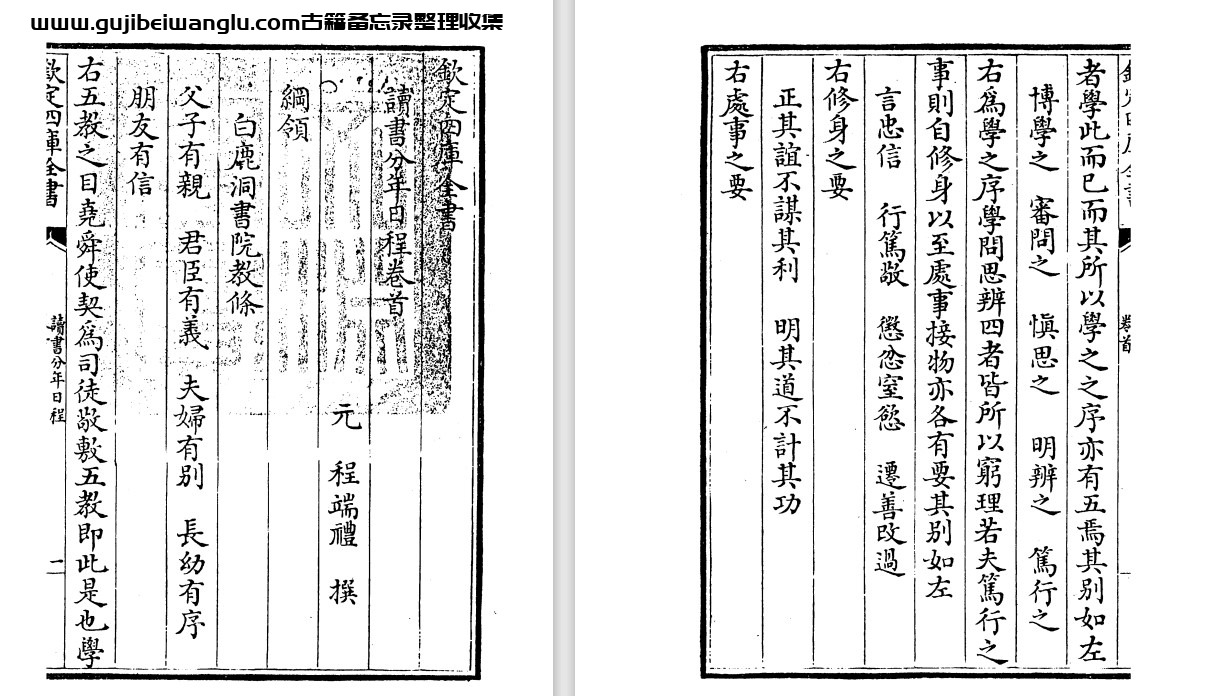 www.gujibeiwanglu.com古籍备忘录整理收集
欽定四庫全書
讀書分年日程卷首
元 程端禮 撰
綱領
白鹿洞書院教條
父子有親 君臣有義 夫婦有别 長幼有序
朋友有信
右五教之目堯舜使契為司徒敬敷五教即此是也學
欽定四庫全書
讀書分年日程
二
者學此而已而其所以學之之序亦有五焉其别如左
博學之 審問之 慎思之 明辨之 篤行之
右為學之序學問思辨四者皆所以窮理若夫篤行之
事則自修身以至處事接物亦各有要其别如左
言忠信 行篤敬 懲忿窒慾 遷善改過
右修身之要
正其誼不謀其利 明其道不計其功
右處事之要
卷首